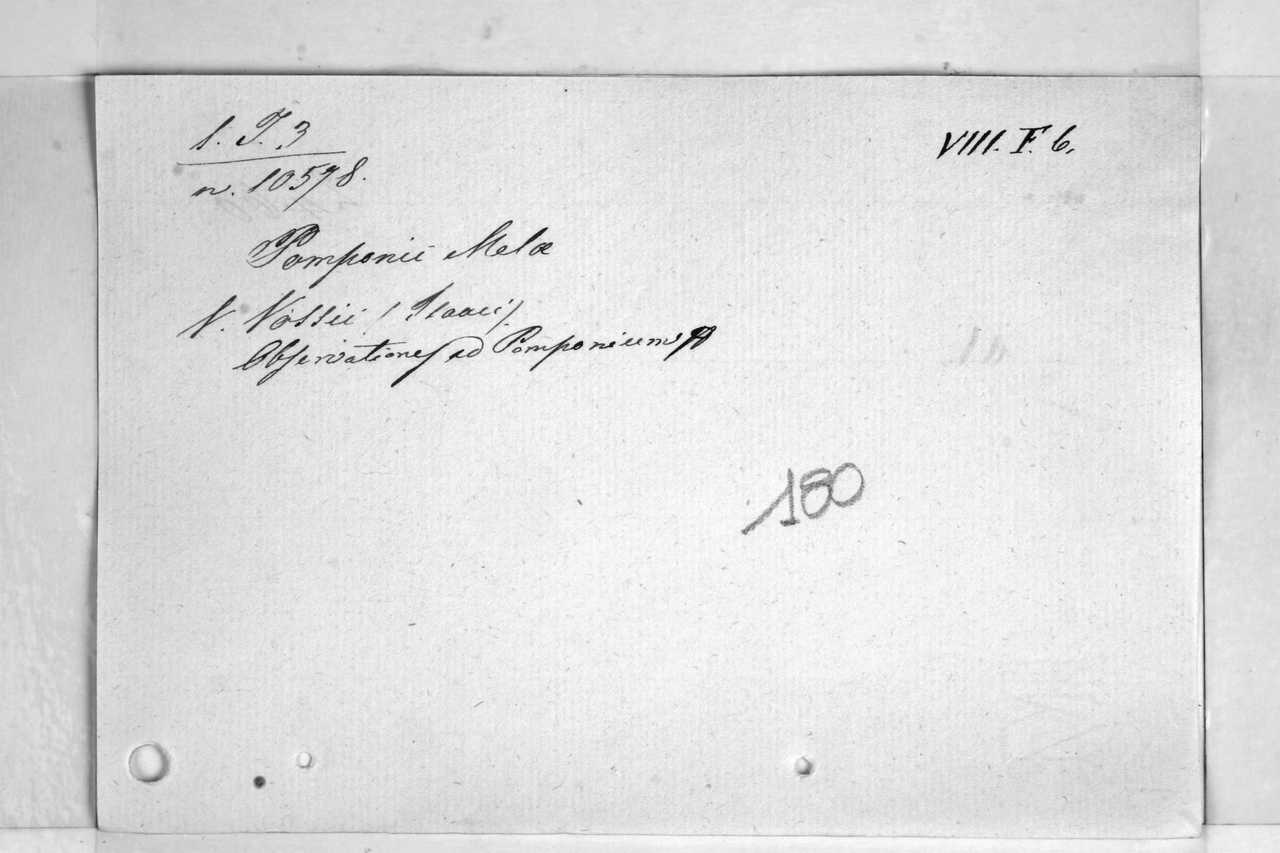 l. J. 3
VIII. F. 6.
n. 10578.
Pomponii Melæ
V. Vossii (Isaaci)
Observationes ad Pomponium
180